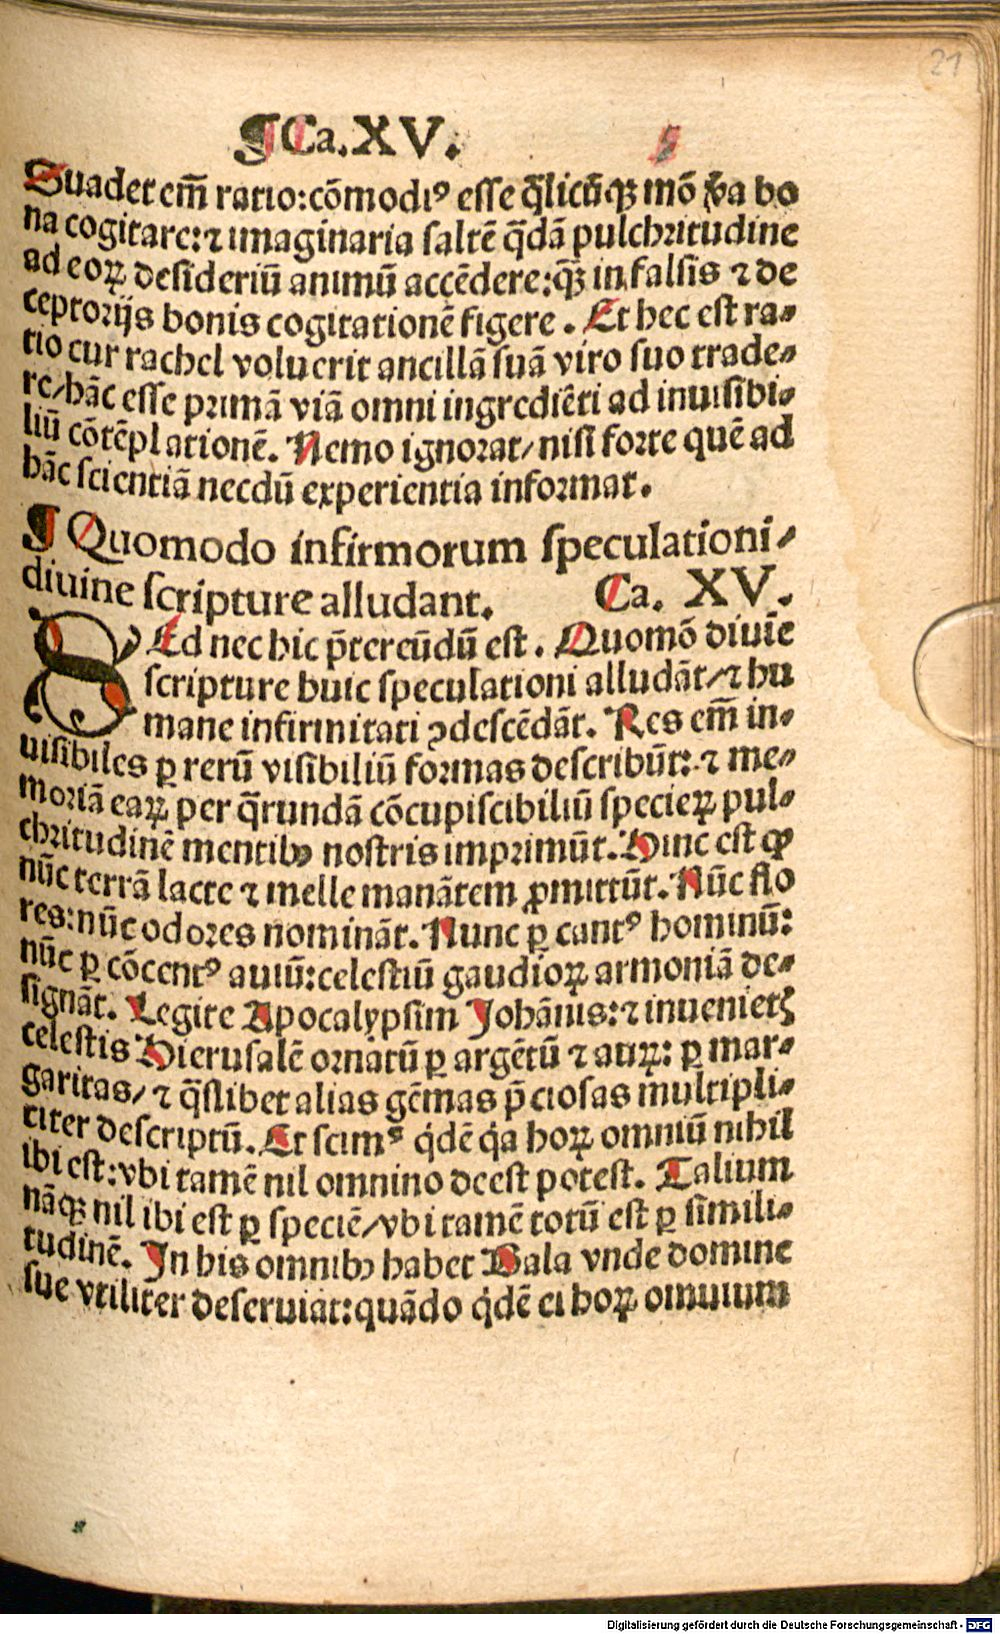 21
¶ Ca. XV.
Suadet em̄ ratio: cōmodiꝰ esse q̄licūqꝫ mō v̄a bo
na cogitare: ⁊ imaginaria saltē q̄dā pulchritudine
ad eoꝝ desideriū animū accēdere: qꝫ in falsis ⁊ de
ceptorijs bonis cogitationē figere. Et hec est ra⸗
tio cur rachel voluerit ancillā suā viro suo trade⸗
re/hāc esse primā viā omni ingrediēti ad inuisibi⸗
liū cōtēplationē. Nemo ignorat/nisi forte quē ad
hāc scientiā necdū experientia informat.
¶ Quomodo infirmorum speculationi⸗
diuine scripture alludant. Ca. XV.
SEd nec hic p̄tereūdū est. Quomō diuīe
scripture huic speculationi alludāt/⁊ hu
mane infirmitati ꝯdescēdāt. Res em̄ in⸗
uisibiles ꝑ rerū visibiliū formas describūt: ⁊ me⸗
moriā eaꝝ per q̄rundā cōcupiscibiliū specieꝝ pul⸗
chritudinē mentibꝰ nostris imprimūt. Hinc est ꝙ
nūc terrā lacte ⁊ melle manātem ꝓmittūt. Nūc flo
res: nūc odores nomināt. Nunc ꝑ cantꝰ hominū:
nūc ꝑ cōcentꝰ auiū: celestiū gaudioꝝ armoniā de⸗
signāt. Legite Apocalypsim Johānis: ⁊ inuenietꝭ
celestis Hierusalē ornatū ꝑ argētū ⁊ auꝝ: ꝑ mar⸗
garitas/ ⁊ q̄slibet alias gēmas p̄ciosas multipli⸗
citer descriptū. Et scimꝰ qͥdē qͥa hoꝝ omniū nihil
ibi est: vbi tamē nil omnino deest potest. Talium
nāqꝫ nil ibi est ꝑ speciē/vbi tamē totū est ꝑ simili⸗
tudinē. In his omnibꝰ habet Bala vnde domine
sue vtiliter deseruiat: quādo qͥdē ei hoꝝ omnium
Digitalisierung gefördert durch die Deutsche Forschungsgemeinschaft - DFG